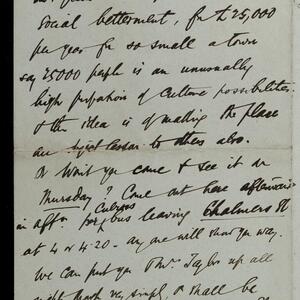 Social betterment, for £25,000
per year for so small a town
say 25000 people is an unusually
high proportion of Culture possibilities
& the idea is of making the place
an object lesson to others also.
Wont you come & see it on
Thursday? Come out here
in aftn. bus leaving Chalmers St
at 4 or 4.20 - any one will show you way.
We can put you & Mr. Taylor up all
night though very simply, & shall be